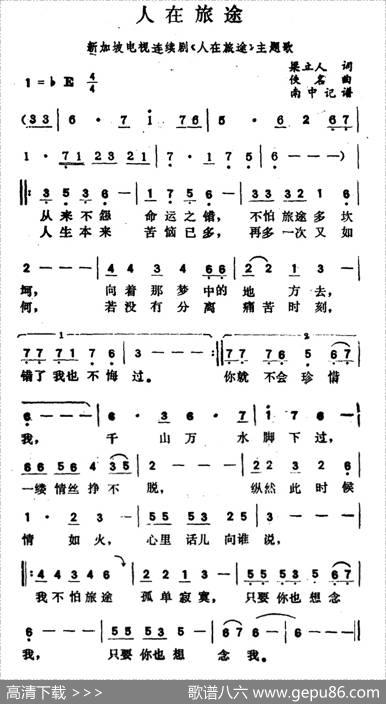 人在旅途
新加坡电视连续剧《人在旅途》主题歌
梁立人 词
1=♭E 4/4 佚名 曲
南中记谱
(33 6·7 13 216 65 5·6 2 67
1·71 2321 71 7·1 75 6--)
‖:3536- 1756- 3332 16
从来不怨 命运之错, 不怕旅途多坎
人生本来 苦恼已多, 再多一次又如
2--- 4434 66 2213-
坷, 向着那梦中的地方去,
何, 若没有分离痛苦时刻,
1 2
77 7176 3--- :‖77 765 67
错了我也不悔过。 你就不会珍惜
6--- 6·36· 7 17 6-
我, 千山万水脚下过,
66 564 35 2--- 223 36
一缕情丝挣不脱, 纵然此时候
1·23- 55 53 235-
情如火, 心里话儿向谁说,
‖:44 346 2213- 55 535 67
我不怕旅途孤单寂寞, 只要你也想念
6--- 55 535 676- 6--:‖
我, 只要你也想念我。
高清下载 >>> 歌谱八六 www.gepu86.com